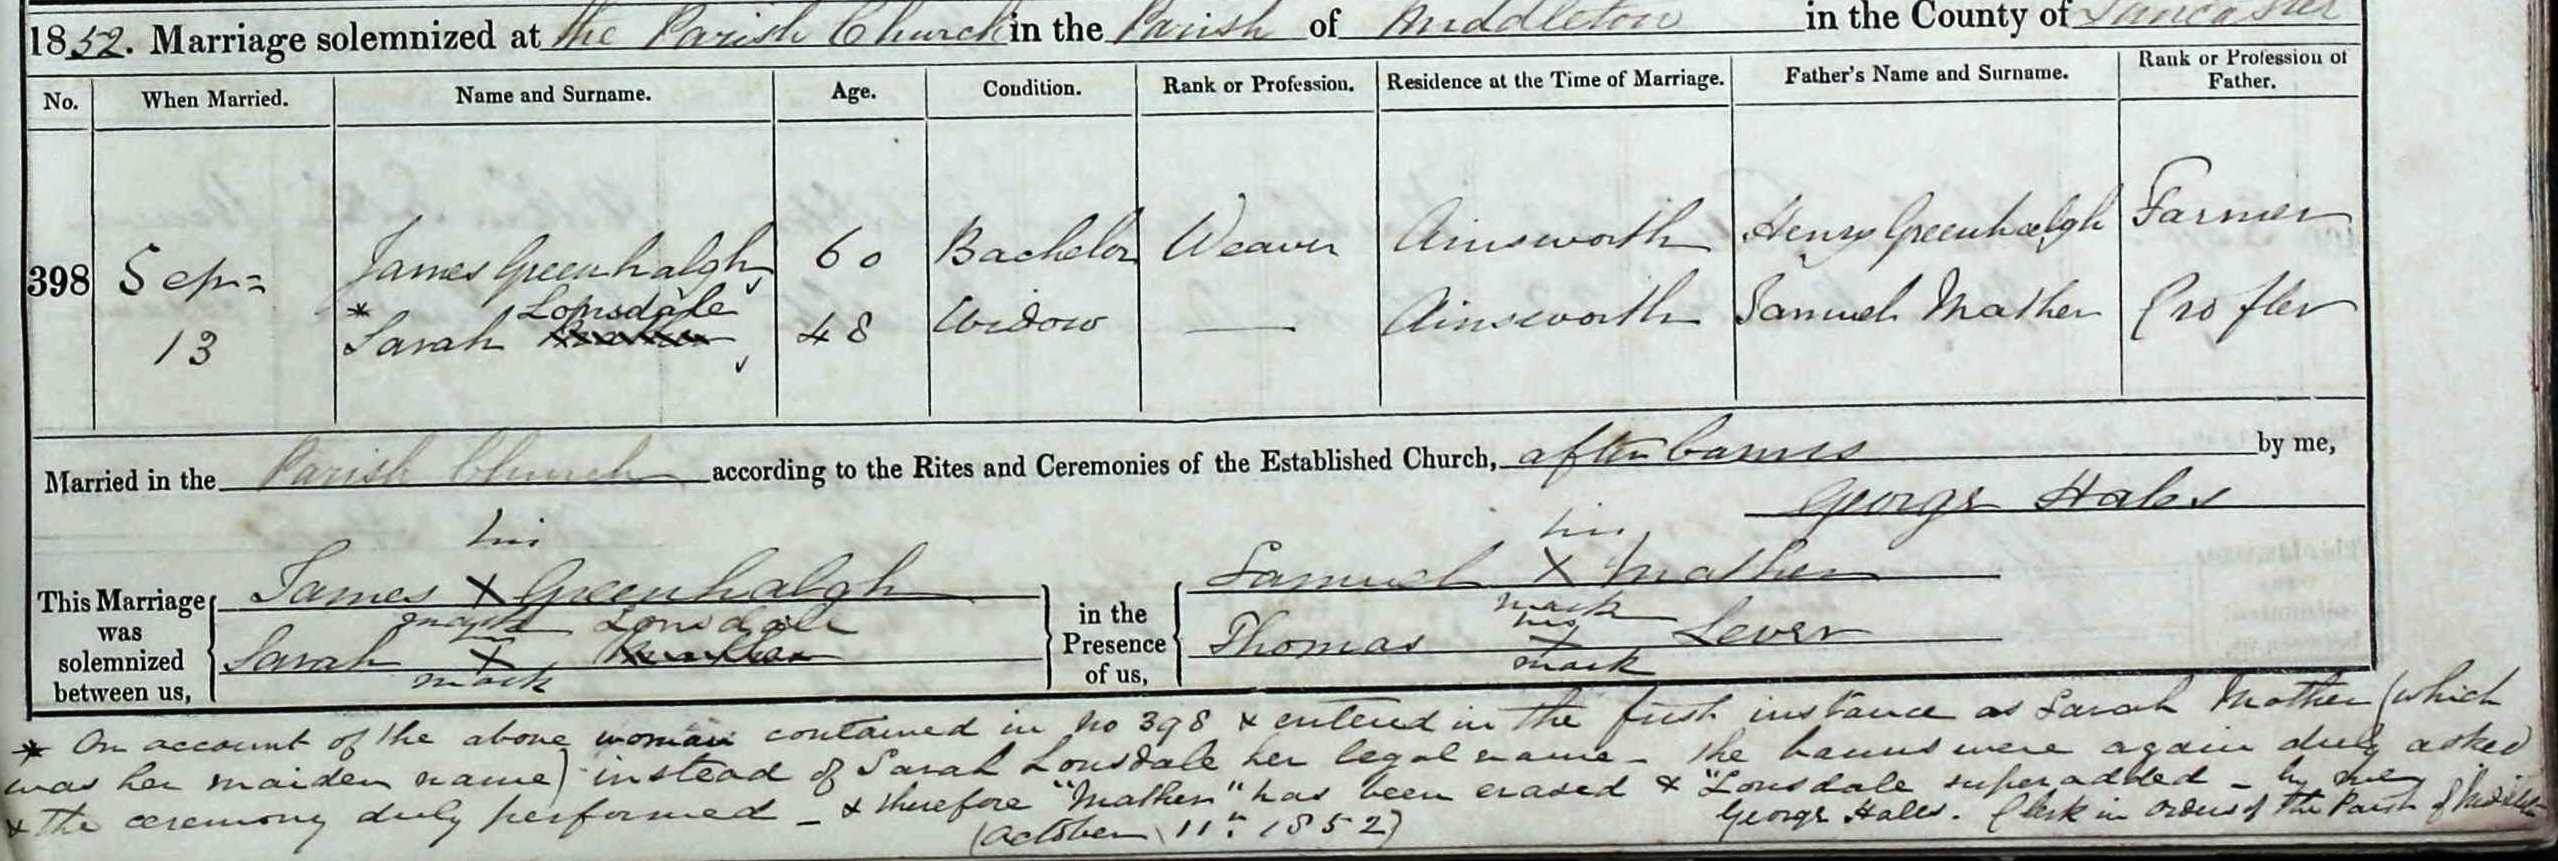 1852. Marriage solemnized at the Parish Church in the Parish of Middleton in the County of Lancaster
No. When Married. Name and Surname. Age. Condition. Rank or Profession. Residence at the Time of Marriage. Father's Name and Surname. Rank or Profession of Father.
398 Sep= 13 James Greenhalgh 60 Bachelor Weaver Ainsworth Henry Greenhalgh Farmer
* Lonsdale
Sarah Mather 48 Widow — Ainsworth Samuel Mather Crofter
Married in the Parish Church according to the Rites and Ceremonies of the Established Church, after banns by me,
George Hales
This Marriage was solemnized between us,
his
James X Greenhalgh
mark Lonsdale
Sarah X Mather
mark
in the Presence of us,
his
Samuel X Mather
mark
his
Thomas X Lever
mark
* On account of the above woman contained in No 398 & entered in the first instance as Sarah Mather (which
was her maiden name) instead of Sarah Lonsdale her legal name - the banns were again duly asked
& the ceremony duly performed - & therefore "Mather" has been erased & "Lonsdale superadded - by me
George Hales. Clerk in Orders of the Parish of Middleton
(October 11th 1852)